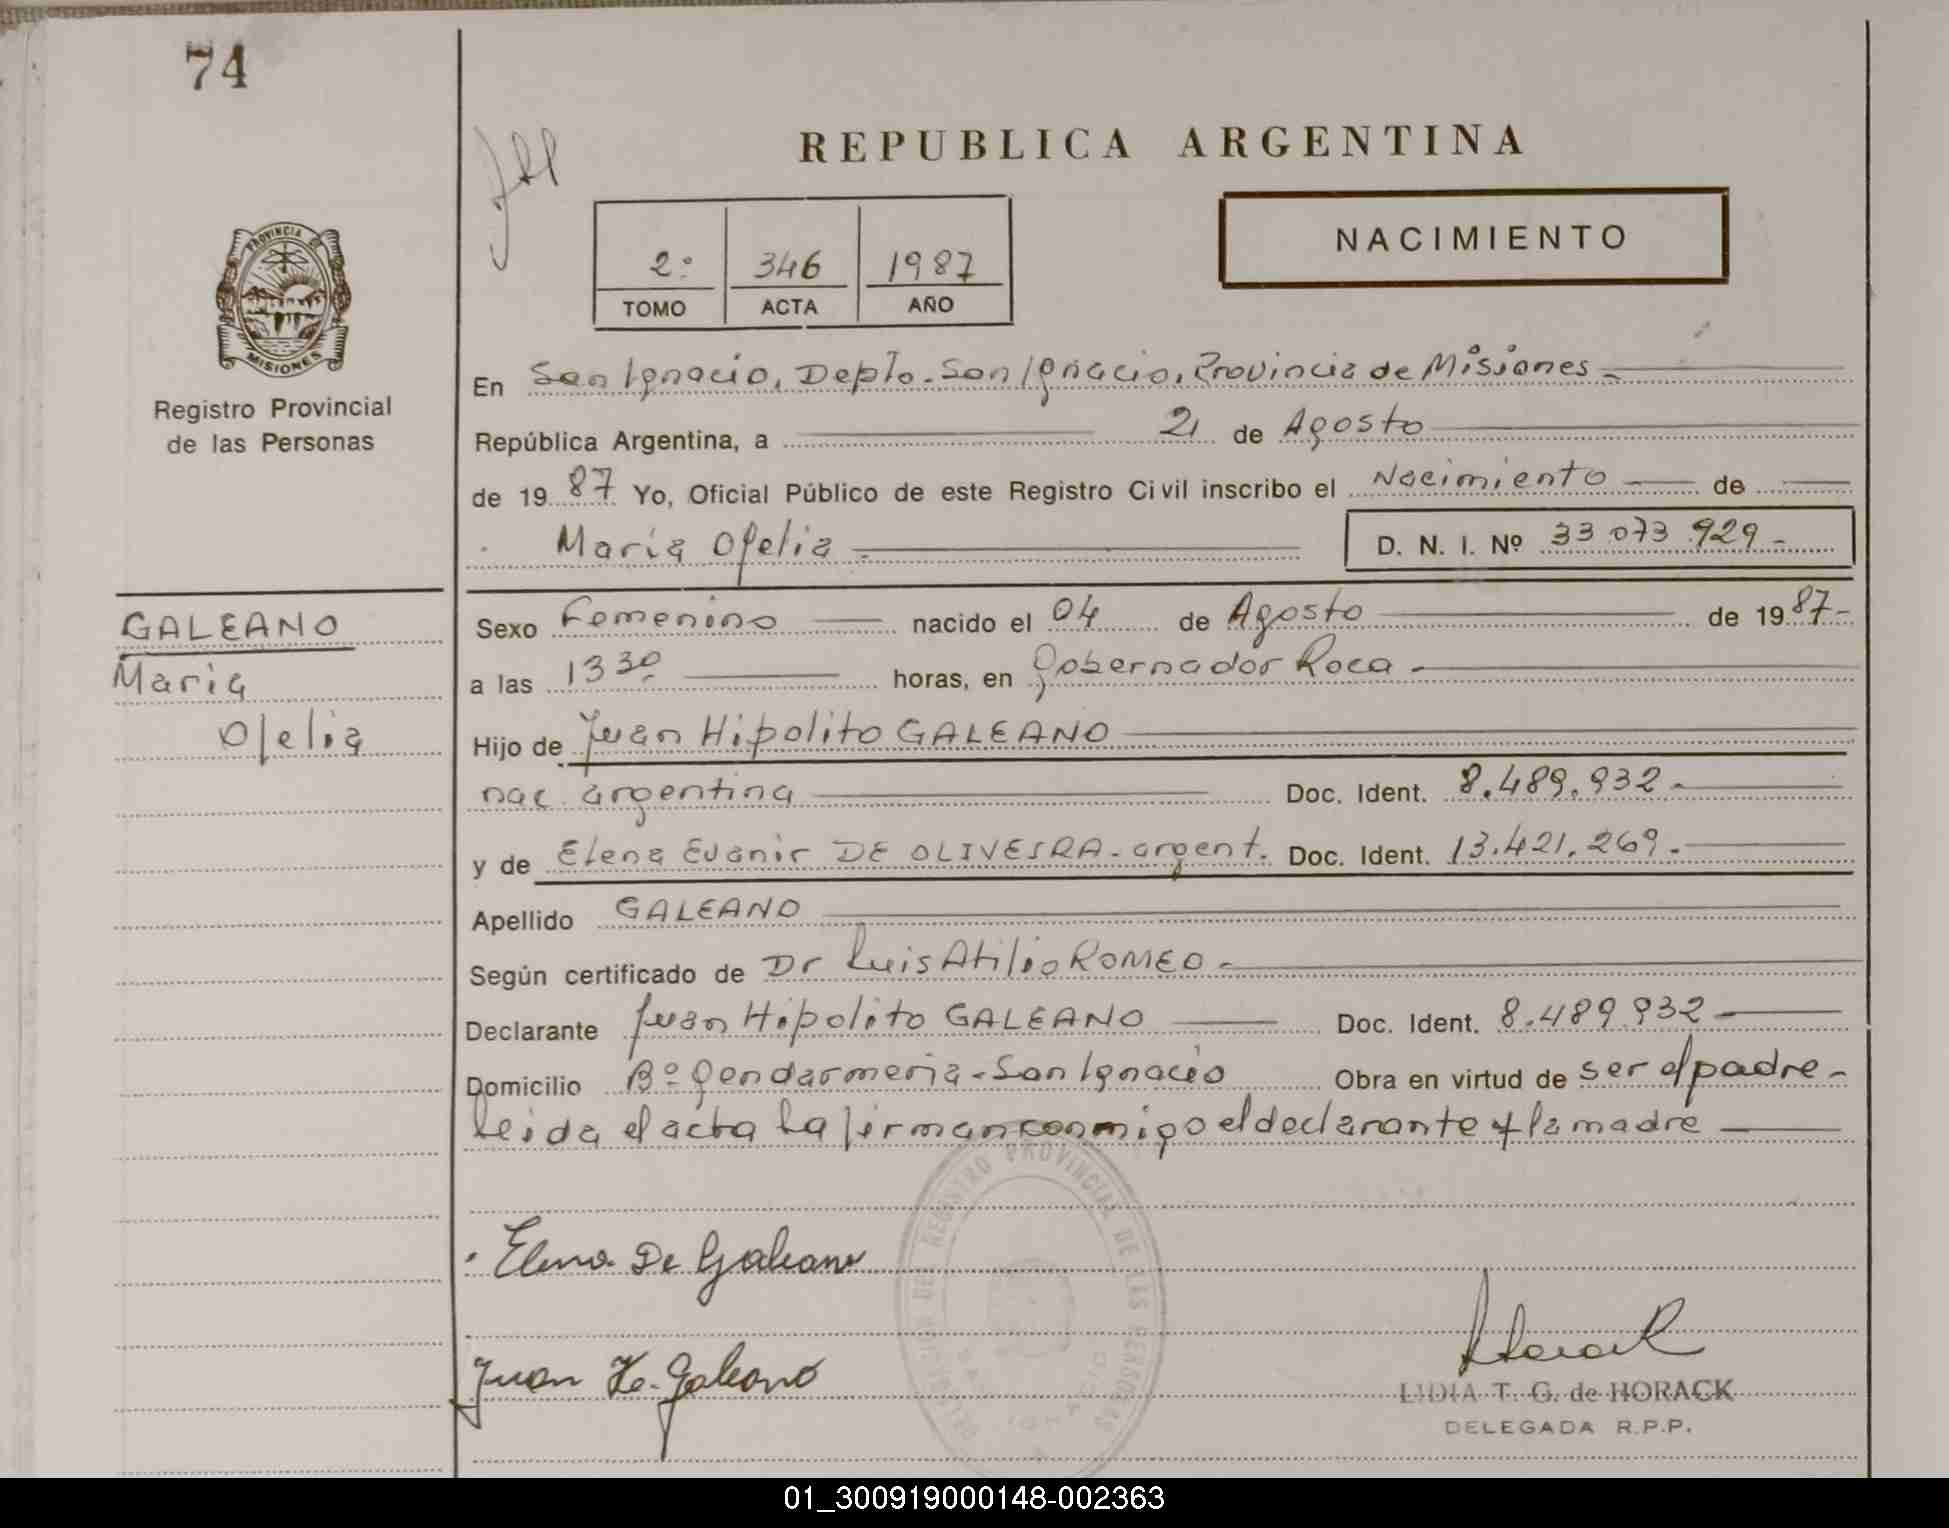 74
REPUBLICA ARGENTINA
NACIMIENTO
2º 346 1987
TOMO ACTA AÑO
PROVINCIA DE
MISIONES
Registro Provincial
de las Personas
En San Ignacio, Depto. San Ignacio, Provincia de Misiones
República Argentina, a 21 de Agosto
de 1987 Yo, Oficial Público de este Registro Civil inscribo el Nacimiento de
María Ofelia D. N. I. Nº 33 073 929
GALEANO
María
Ofelia
Sexo Femenino nacido el 04 de Agosto de 1987
a las 13 30 horas, en Gobernador Roca
Hijo de Juan Hipolito GALEANO
nac. argentina Doc. Ident. 8.489.932
y de Elena Evanir DE OLIVEIRA - argent. Doc. Ident. 13.421.269
Apellido GALEANO
Según certificado de Dr Luis Atilio ROMEO
Declarante Juan Hipolito GALEANO Doc. Ident. 8.489.932
Domicilio Bº Gendarmeria - San Ignacio Obra en virtud de ser el padre
leida el acta la firman conmigo el declarante y la madre
DELEGACION DEL REGISTRO PROVINCIAL DE LAS PERSONAS
Elena De Galeano
Juan H. Galeano
Horack
LIDIA T. G. de HORACK
DELEGADA R.P.P.
01_300919000148-002363